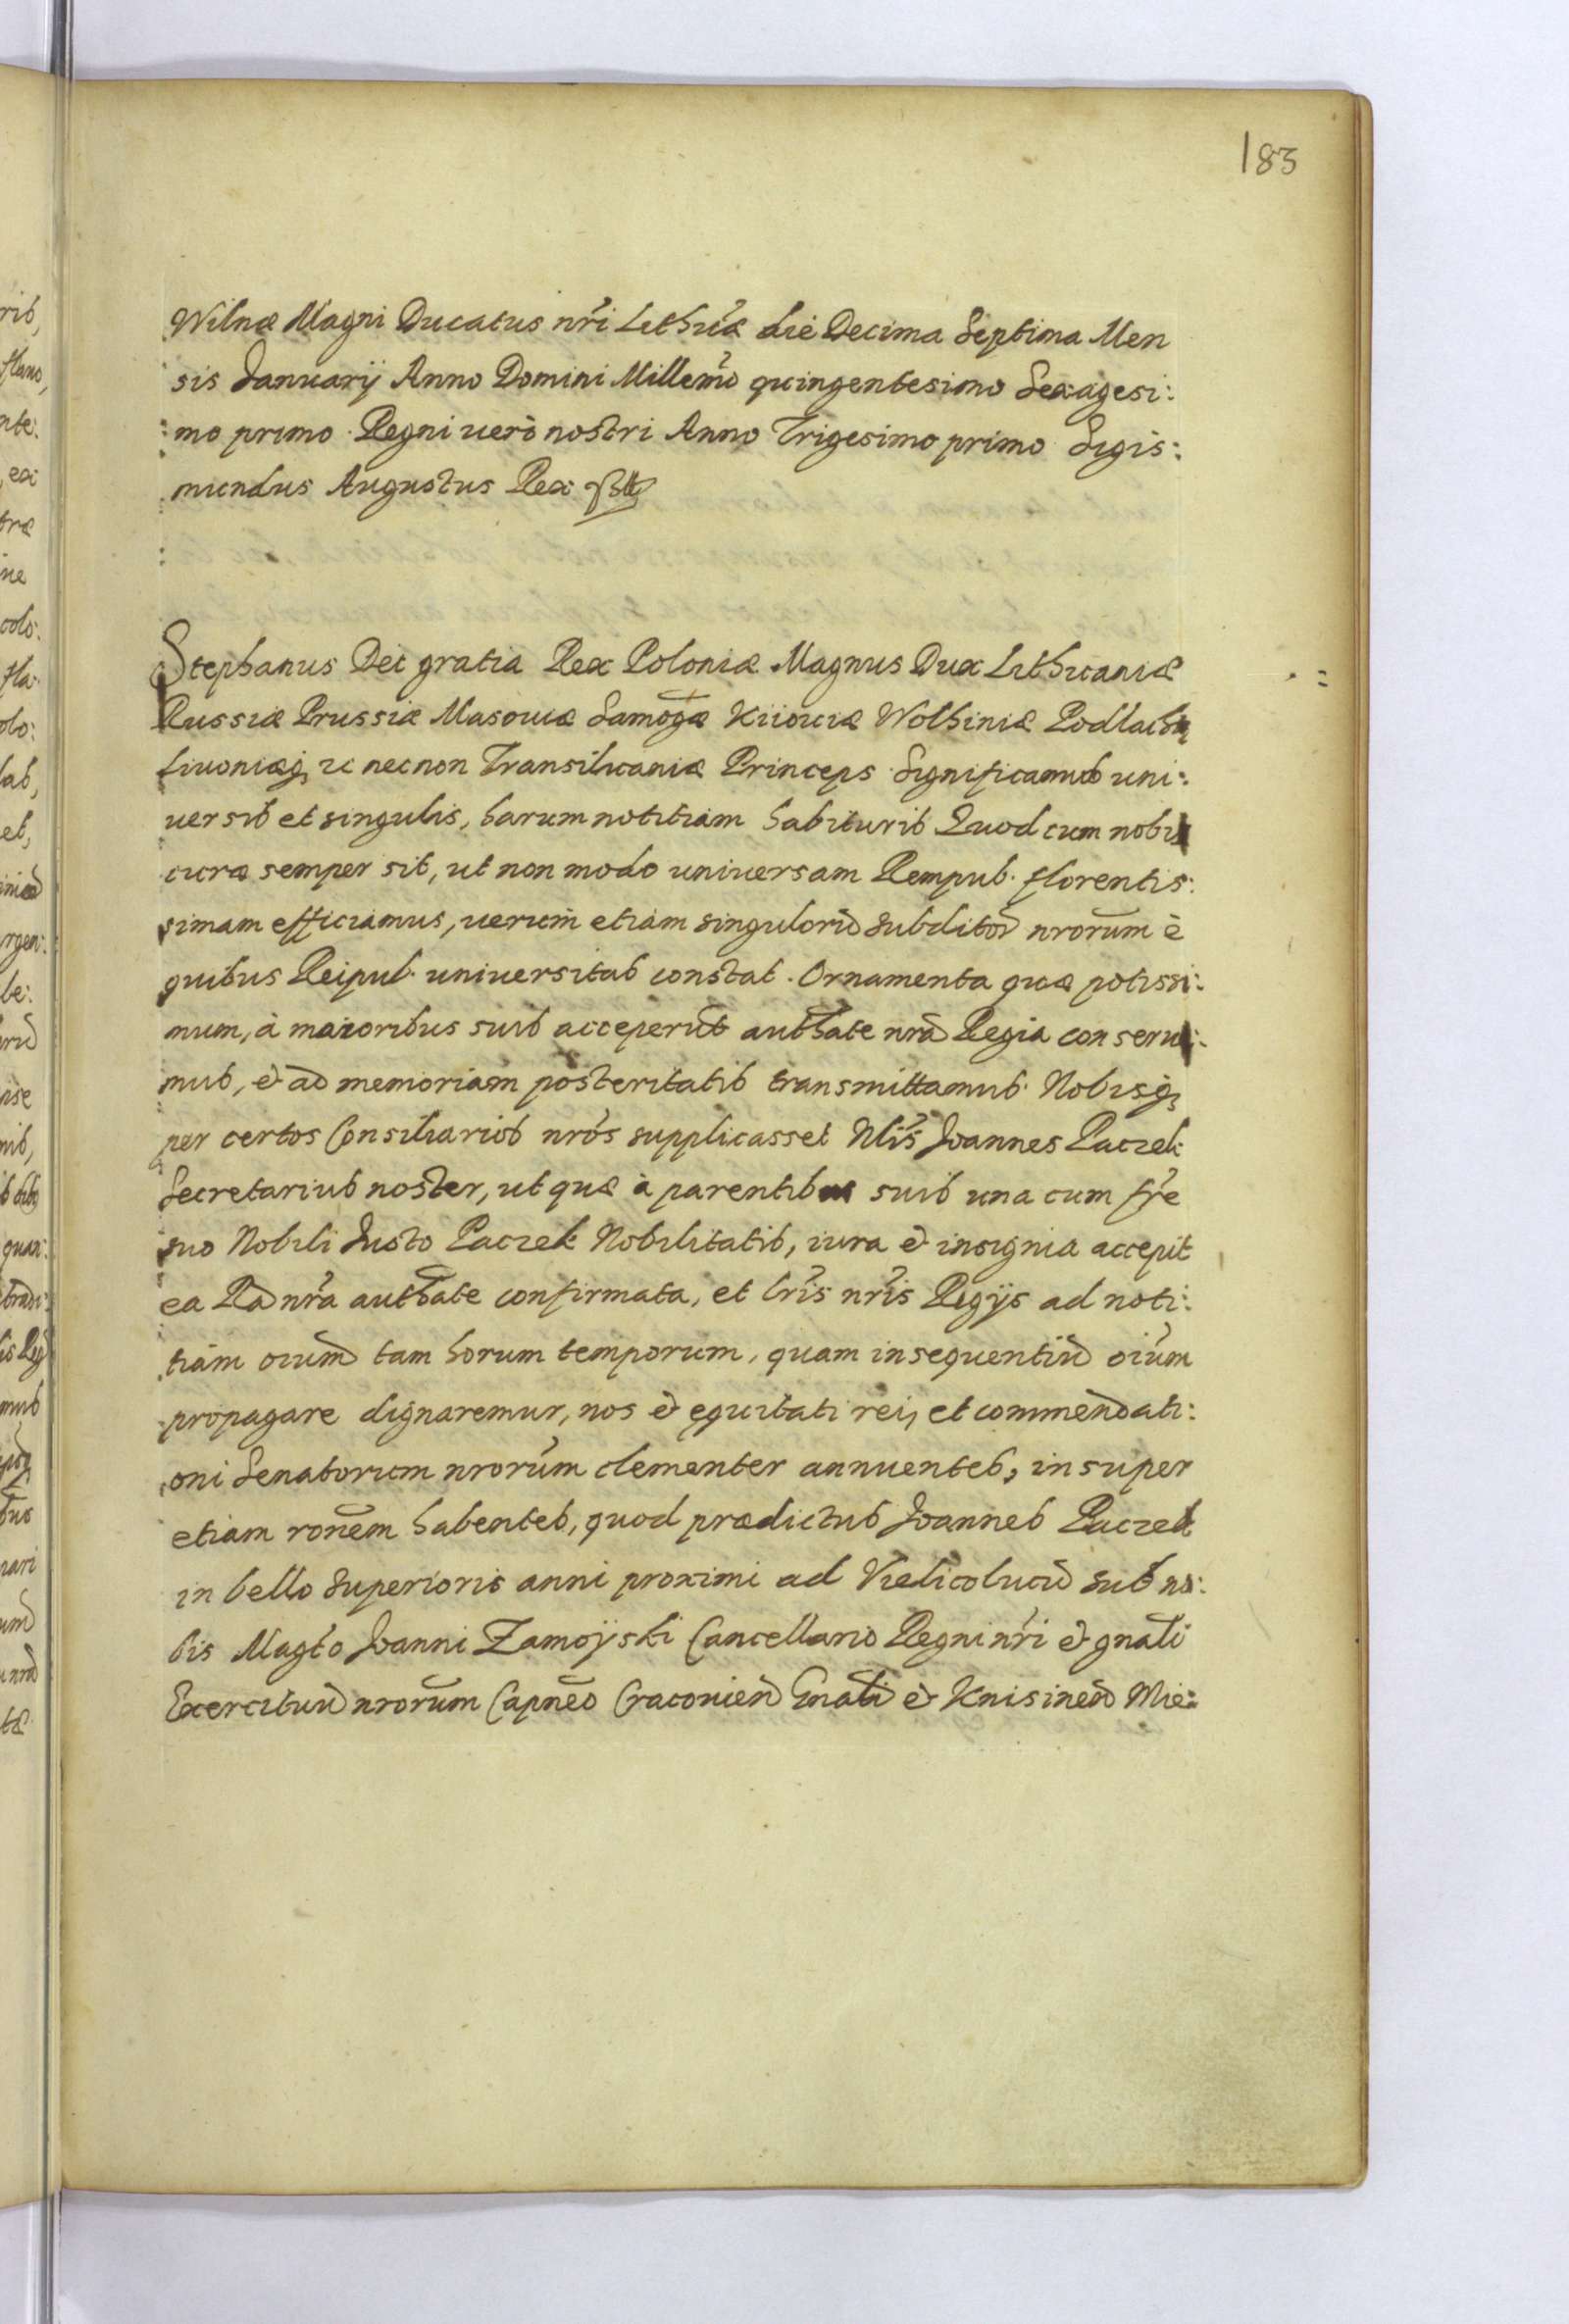 183
Wilnæ Magni Ducatus nr̃i Lithũæ die Decima Septima Men
sis Januarij Anno Domini Millem̃o quingentesimo Sexagesi:
mo primo Regni uerò nostri Anno Trigesimo primo Sigis:
mundus Augustus Rex
Stephanus Dei gratia Rex Poloniæ Magnus Dux Lithuaniæ
Russiæ Prussiæ Masouiæ Samog̃æ Kiiouiæ Wolhiniæ Podlachiæ
Liuoniæq; ꝛc necnon Transiluaniæ Princeps Significamus uni:
uersis et singulis, harum notitiam habituris Quod cum nobis
curæ semper sit, ut non modo uniuersam Rempub. florentis:
simam efficiamus, uerum etiam singulorũ subditorũ nrorum̃ è
quibus Reipub. uniuersitas constat. Ornamenta quæ potissi:
mum, à maioribus suis acceperũt auth̃ate nrã Regia conserue:
mus, & ad memoriam posteritatis transmittamus. Nobisq;
per certos Consiliarios nrõs supplicasset Nl̃is Joannes Paczek
Secretarius noster, ut quæ à parentibus suis una cum fr̃e
suo Nobili Justo Paczek Nobilitatis, iura & insignia accepit
ea Rã nr̃a auth̃ate confirmata, et lr̃is nr̃is Regijs ad noti:
tiam oium̃ tam horum temporum, quam insequentiũ oiũm
propagare dignaremur, nos & ęquitati rei, et commendati:
oni Senatorum nrorũm clementer annuentes, insuper
etiam ronẽm habentes, quod prædictus Joannes Paczek
in bello superioris anni proximi ad Vielicolucũ sub no:
bis Magc̃o Joanni Zamoÿski Cancellario Regni nr̃i & gnãli
Exercituũ nrorũm Capnẽo Cracouieñ Gnãli & Knisineñ Mie: